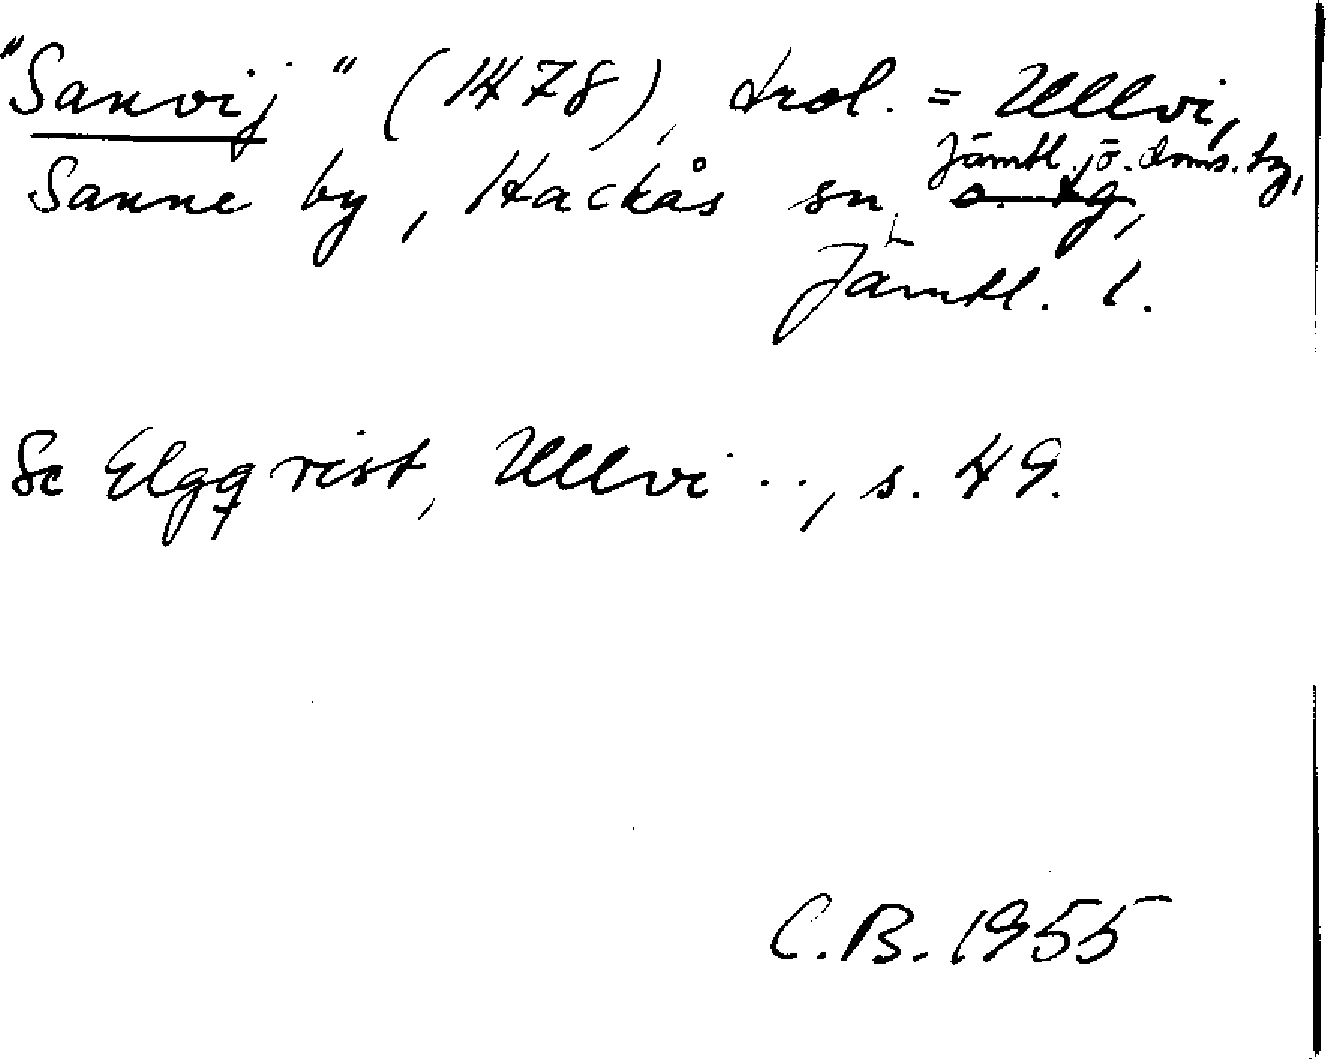 "Sanvij" (1478), trol. = Ullvi,
Sanne by, Hackås sn, Jämtl. jö. dms. tg,
Jämtl. l.
Se Elgqvist, Ullvi .., s. 49.
C.B. 1955